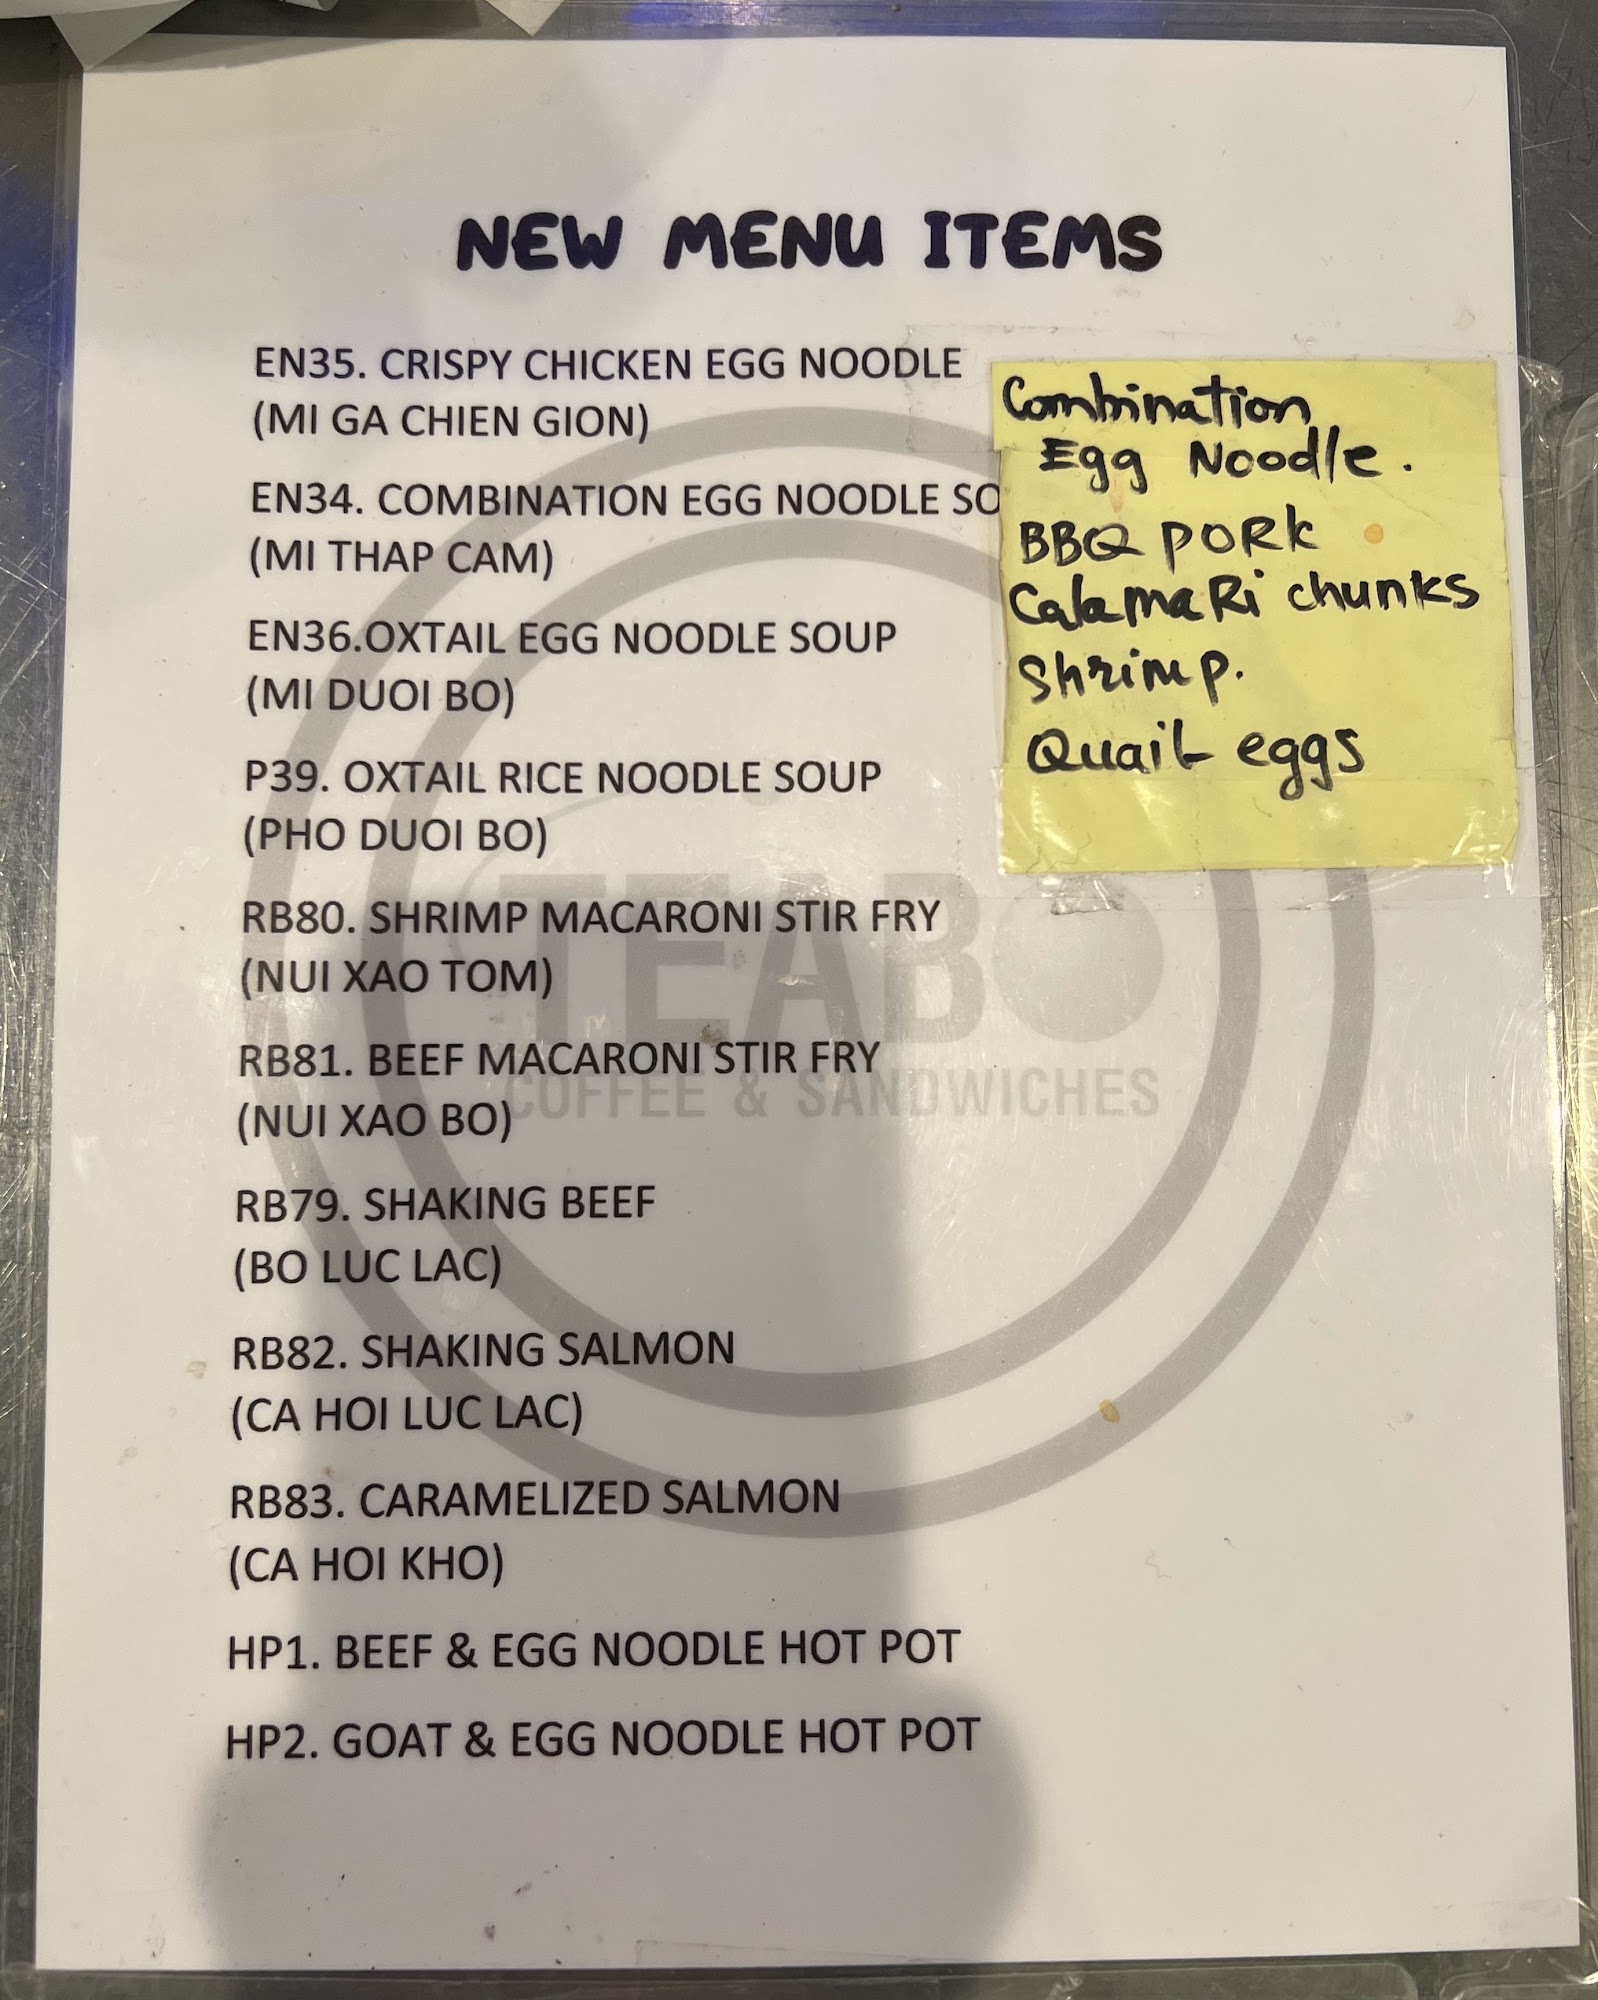 NEW MENU ITEMS
EN35. CRISPY CHICKEN EGG NOODLE
(MI GA CHIEN GION)
EN34. COMBINATION EGG NOODLE SO
(MI THAP CAM)
EN36.OXTAIL EGG NOODLE SOUP
(MI DUOI BO)
P39. OXTAIL RICE NOODLE SOUP
(PHO DUOI BO)
RB80. SHRIMP MACARONI STIR FRY
(NUI XAO TOM)
RB81. BEEF MACARONI STIR FRY
(NUI XAO BO)
RB79. SHAKING BEEF
(BO LUC LAC)
RB82. SHAKING SALMON
(CA HOI LUC LAC)
RB83. CARAMELIZED SALMON
(CA HOI KHO)
HP1. BEEF & EGG NOODLE HOT POT
HP2. GOAT & EGG NOODLE HOT POT
Combination
Egg Noodle.
BBQ PORK
CalamaRi chunks
Shrimp.
Quail eggs
TEABO
COFFEE & SANDWICHES